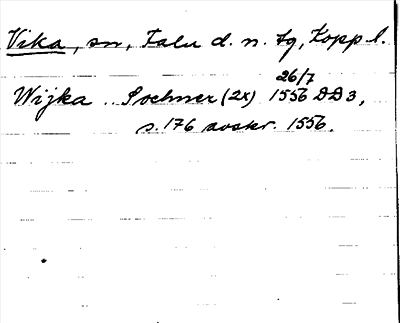 Vika, sn, Falu d. n. tg, Kopp l.
26/7
Wijka .. Sochner (2x) 1556 DD3,
s. 176 avskr. 1556.